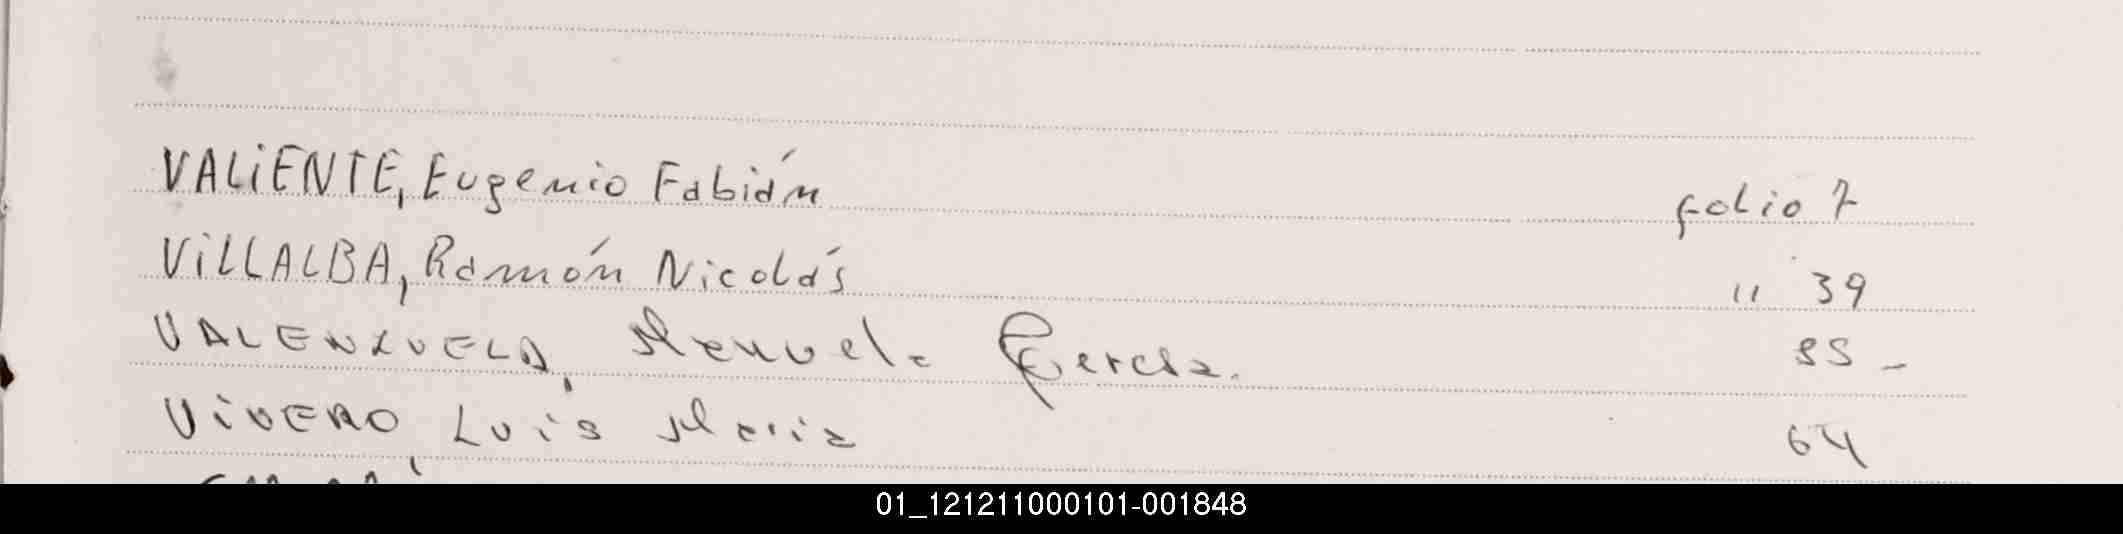 VALiENTE, Eugenio Fabián folio 7
ViLLALBA, Ramón Nicolás " 39
VALENZUELA, Manuela 55 -
ViVERO, Luis Maria 64
01_121211000101-001848